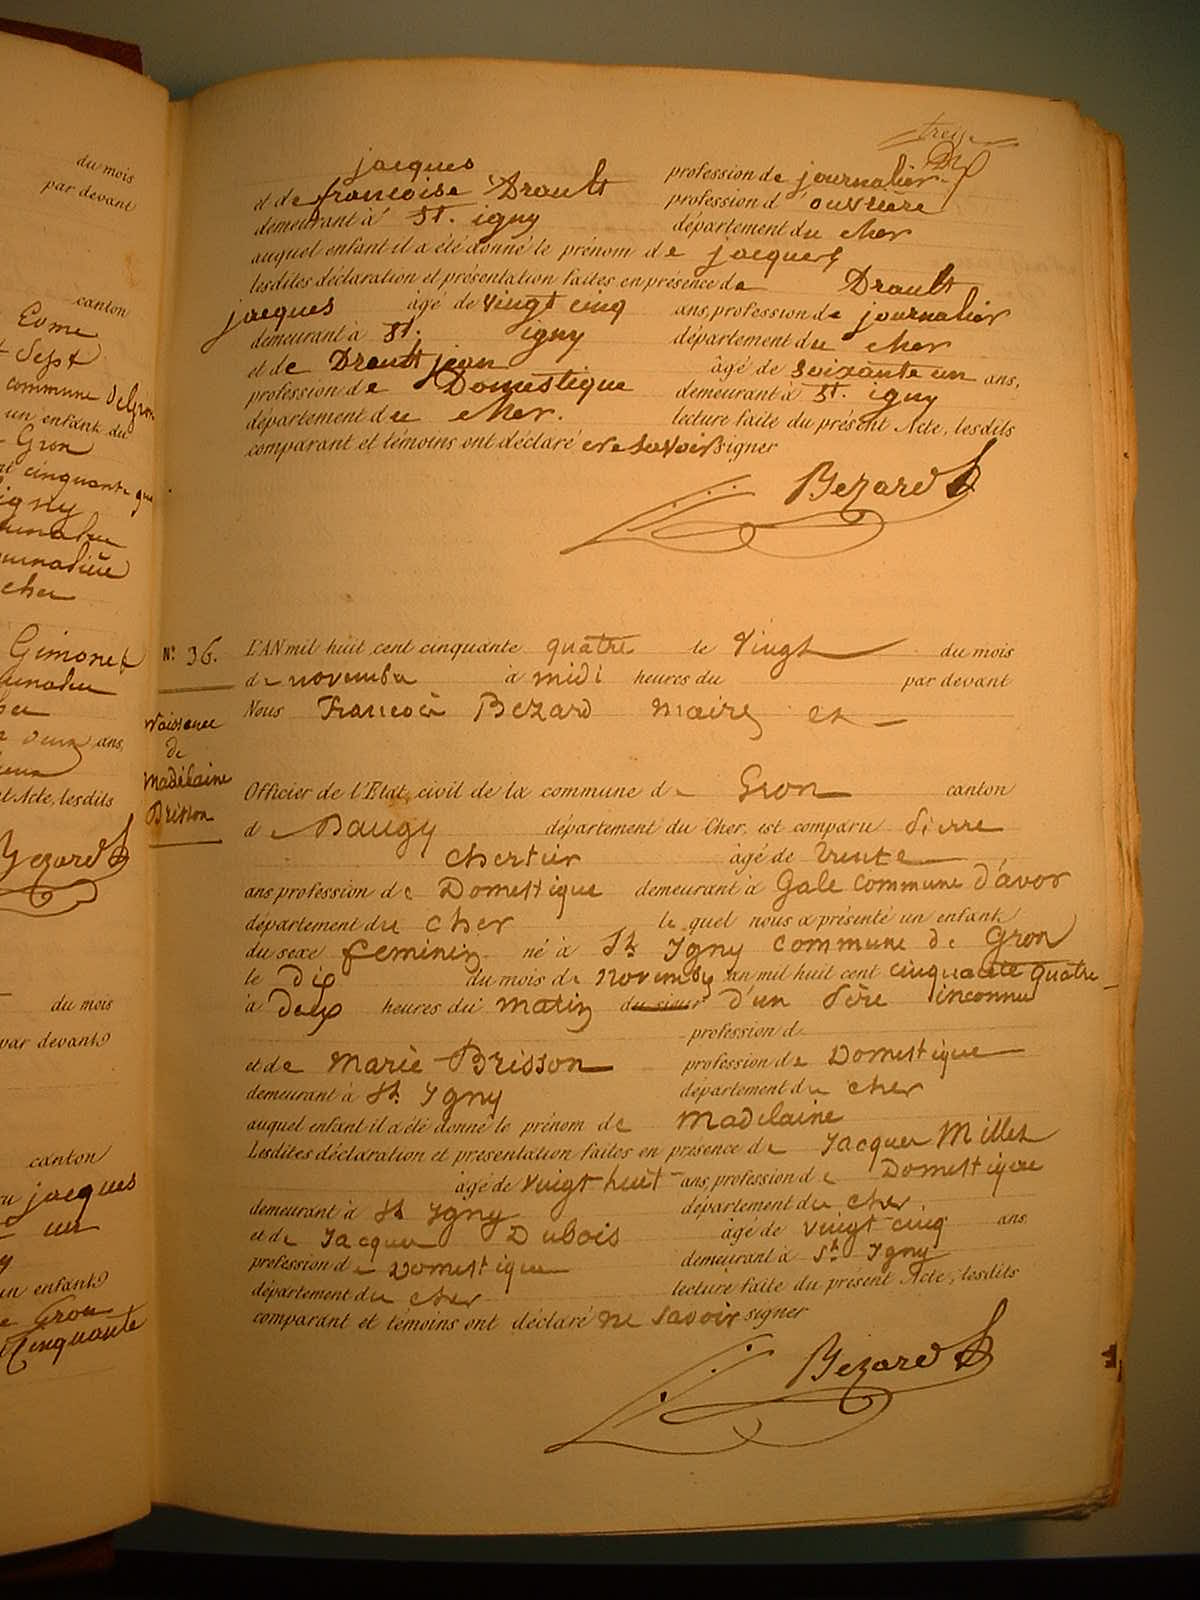 du mois
par devant
canton
Eome
Sept
commune de Gron
un enfant du
Gron
cinquante
igny
cher
Gimonet
ans,
Acte, lesdits
Bezard
du mois
par devant
canton
jacques
un
un enfant
Gron
Cinquante
treize
jacques profession de journalier
et de francoise Drault profession d'ouvriere
demeurant à St. igny département du cher
auquel enfant il a été donné le prénom de jacques
lesdites déclaration et présentation faites en présence de Drault
jacques âgé de vingt cinq ans, profession de journalier
demeurant à St. igny département du cher
et de Drault jean âgé de soixante un ans,
profession de Domestique demeurant à St. igny
département du cher. lecture faite du présent Acte, lesdits
comparant et témoins ont déclaré ne savoir signer
Bezard
N.° 36. L'AN mil huit cent cinquante quatre le vingt du mois
de novembre à midi heures du par devant
Nous Francois Bezard maire et
Naissance
de
Madelaine
Brisson
Officier de l'Etat civil de la commune de Gron canton
de Baugy département du Cher, est comparu Pierre
Chertier âgé de trente
ans profession de Domestique demeurant à Gale commune d'avor
département du cher le quel nous a présenté un enfant
du sexe feminin né à St Igny commune de Gron
le dix du mois de novembre an mil huit cent cinquante quatre
à deux heures du matin du sieur d'un Père inconnu
profession d
et de Marie Brisson profession de Domestique
demeurant à St Igny département du cher
auquel enfant il a été donné le prénom de Madelaine
Lesdites déclaration et présentation faites en présence de Jacques Millet
âgé de vingt huit ans, profession de Domestique
demeurant à St Igny département du cher
et de Jacques Dubois âgé de vingt cinq ans
profession de Domestique demeurant à St Igny
département du cher lecture faite du présent Acte, lesdits
comparant et témoins ont déclaré ne savoir signer
Bezard